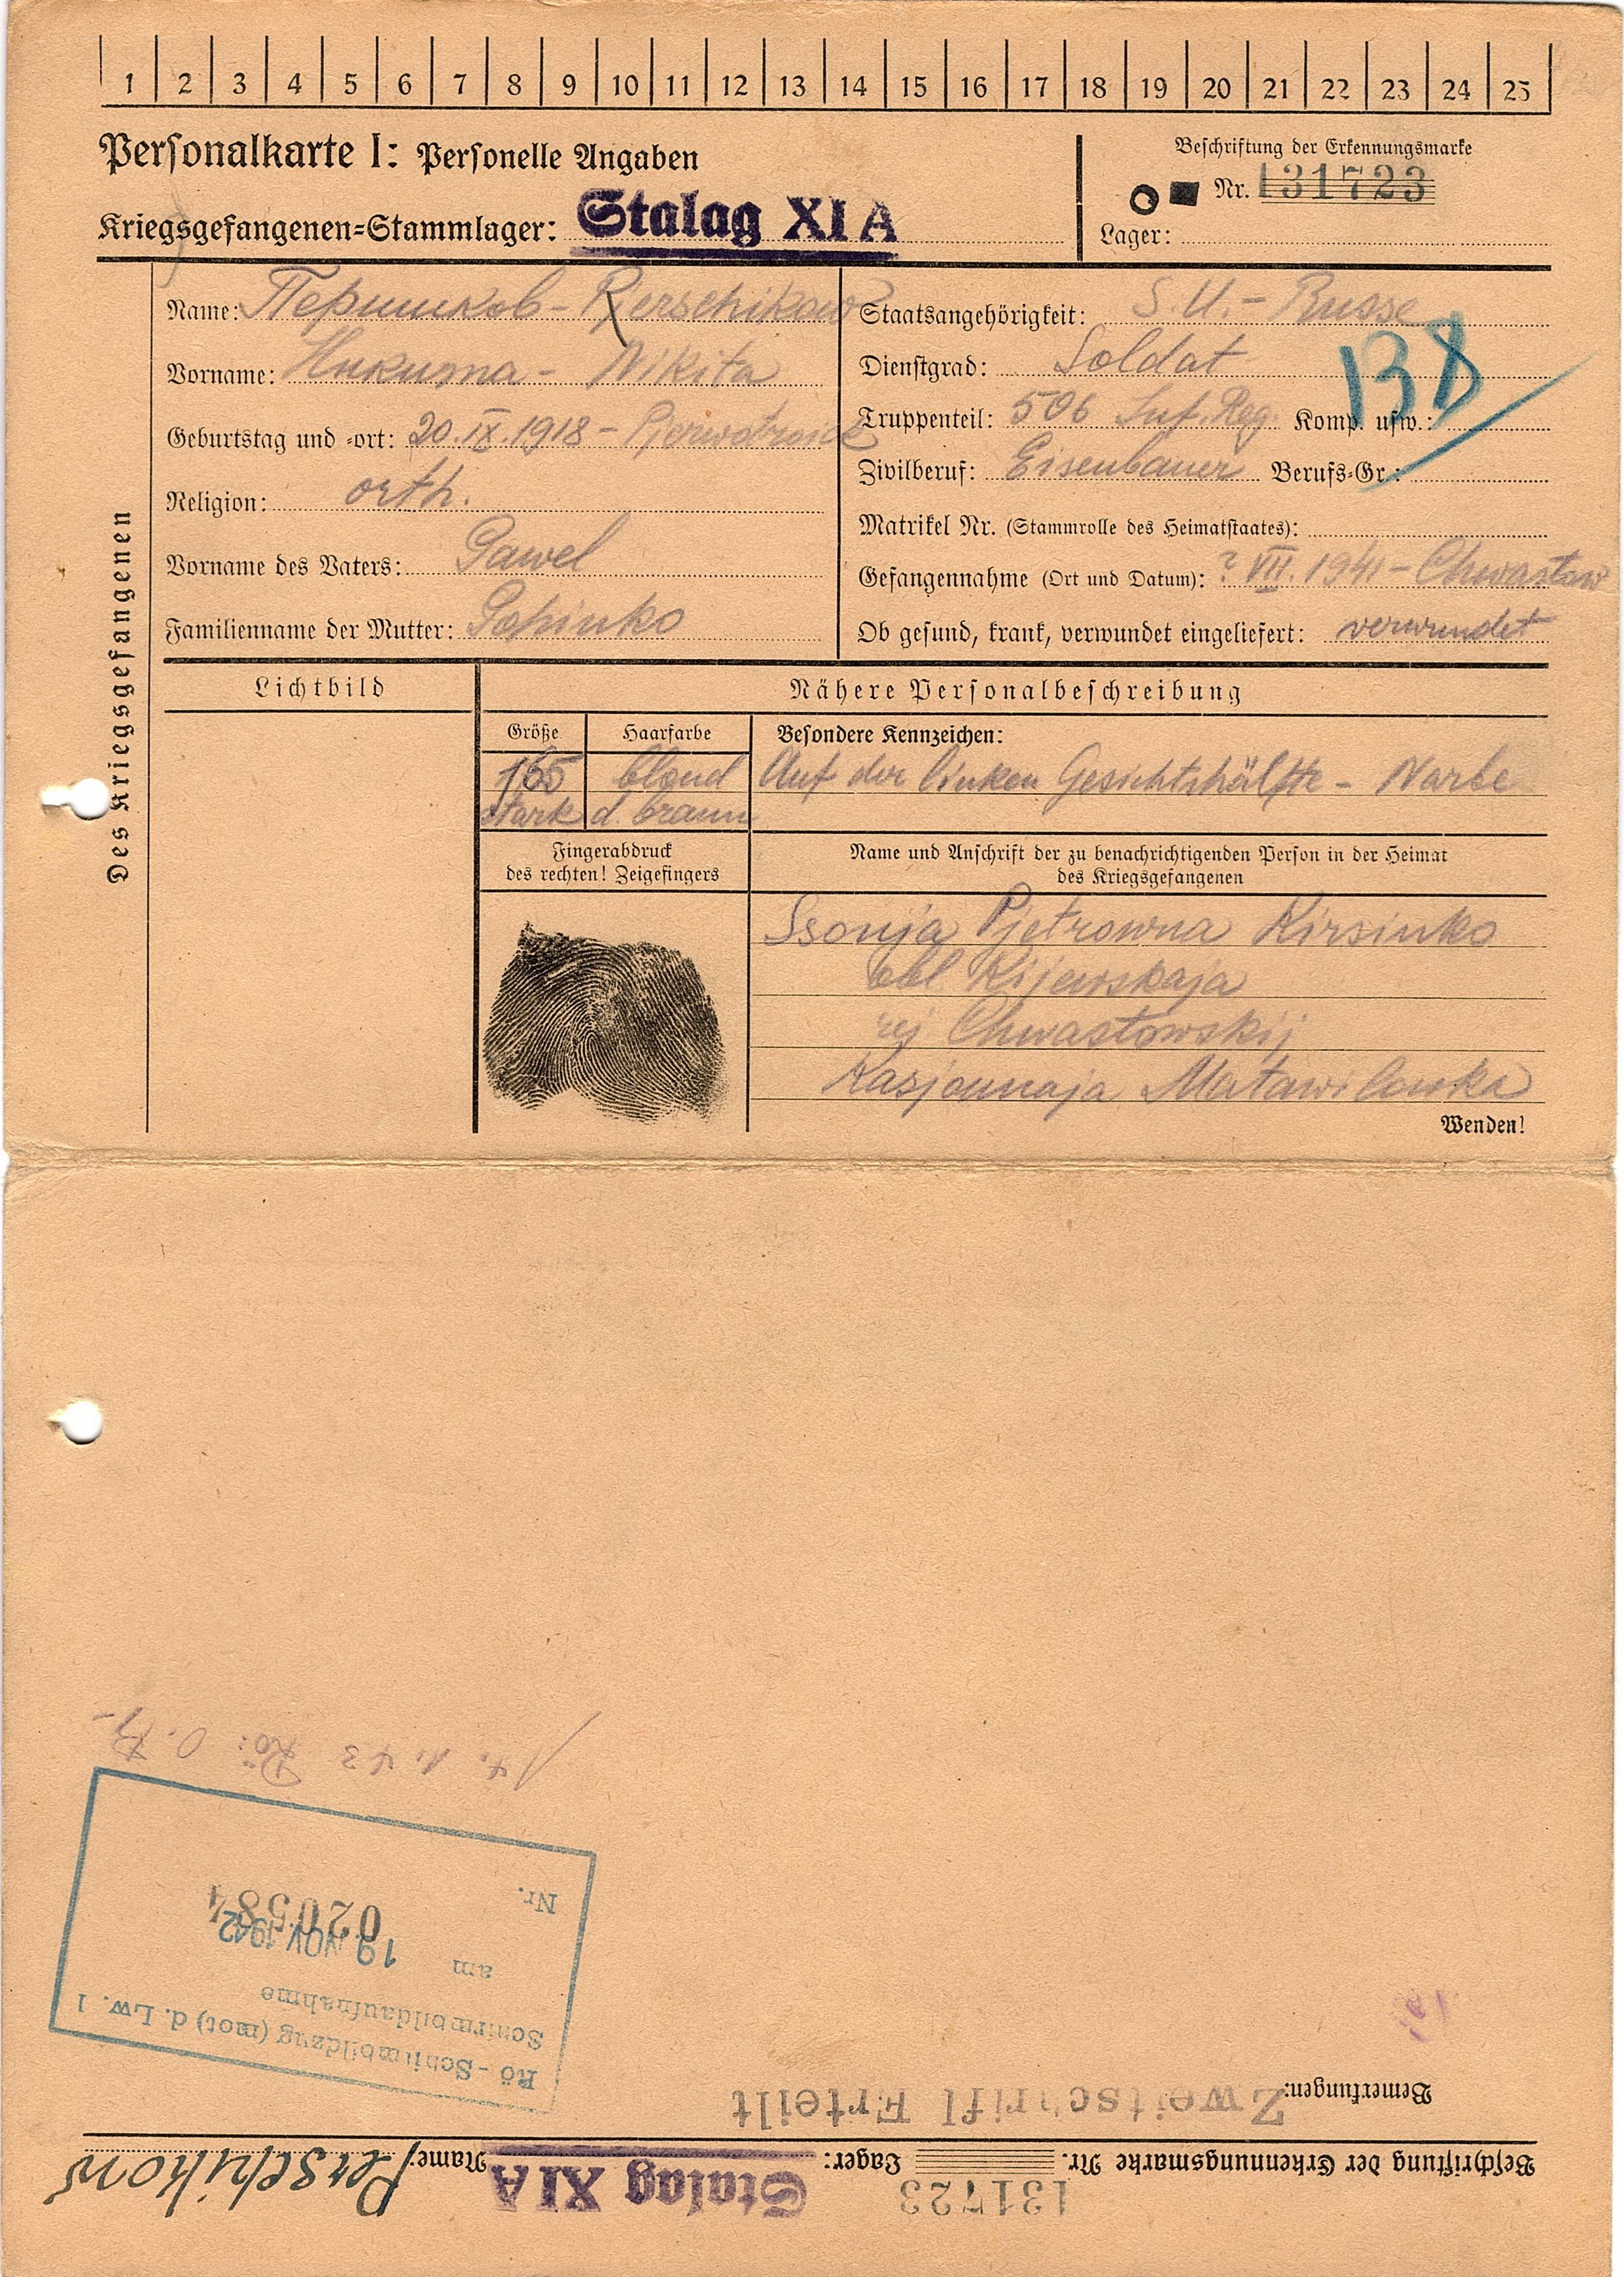 1 2 3 4 5 6 7 8 9 10 11 12 13 14 15 16 17 18 19 20 21 22 23 24 25
Personalkarte I: Personelle Angaben
Kriegsgefangenen=Stammlager: Stalag XI A
Beschriftung der Erkennungsmarke
Nr. 131723
Lager:
Des Kriegsgefangenen
Name: Першиков - Pjerschikow
Vorname: Никита - Nikita
Geburtstag und =ort: 20. IX. 1918 -
Religion: orth.
Vorname des Vaters: Pawel
Familienname der Mutter:
Staatsangehörigkeit: S.U. - Russe
Dienstgrad: Soldat
Truppenteil: 506 Inf. Reg. Komp. usw.:
Zivilberuf: Eisenbauer Berufs=Gr.:
Matrikel Nr. (Stammrolle des Heimatstaates):
Gefangennahme (Ort und Datum): ? VII. 1941 - Chwastow
Ob gesund, krank, verwundet eingeliefert: verwundet
Lichtbild
Nähere Personalbeschreibung
Größe Haarfarbe Besondere Kennzeichen:
165 blond Auf der linken Gesichtshälfte - Narbe
stark d. braun
Fingerabdruck
des rechten! Zeigefingers
Name und Anschrift der zu benachrichtigenden Person in der Heimat
des Kriegsgefangenen
Ssonja Pjetrowna Kirsinko
obl Kijewskaja
rej Chwastowskij
Wenden!
Beschriftung der Erkennungsmarke Nr. 131723 Lager: Stalag XI A Name: Perschikow
Bemerkungen: Zweitschrift Erteilt
Rö - Schirmbildzug (mot) d. Lw. 1
Schirmbildaufnahme
am 19 NOV 1942
Nr. 020584
Rö: O. B.